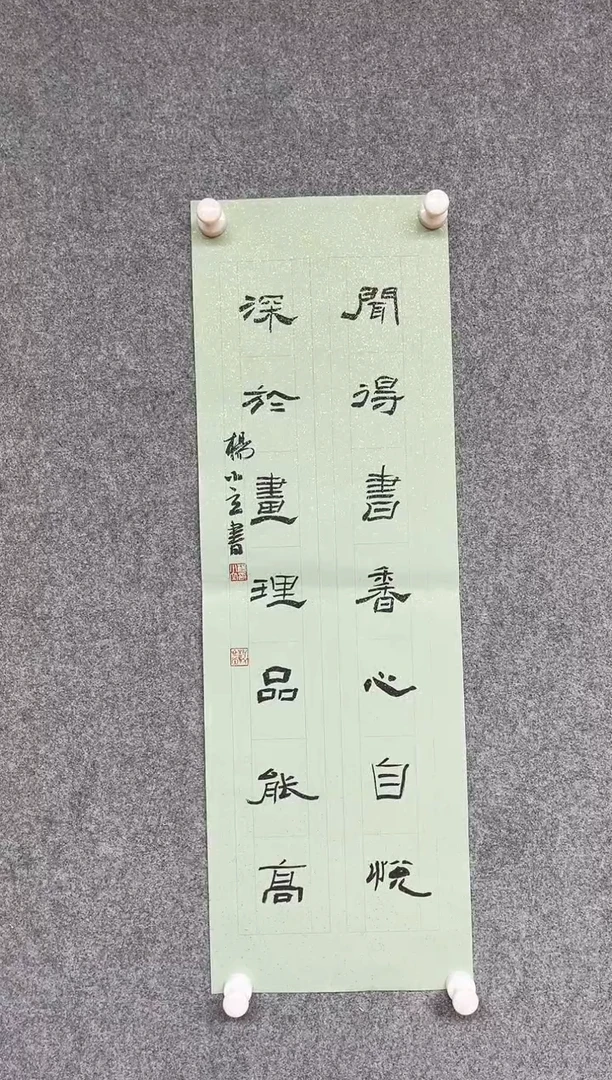 聞得書香心自悅
深於畫理品能高
楊小立書